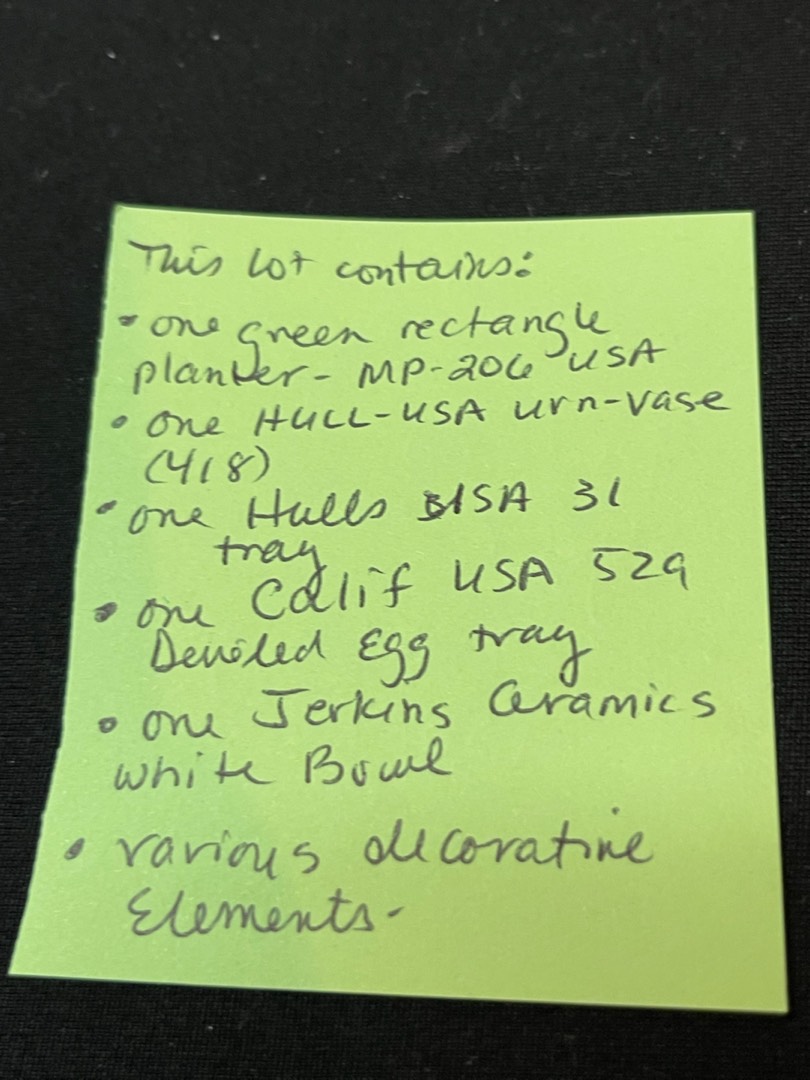 This lot contains:
• one green rectangle
planter - MP-206 USA
• one HULL-USA urn-vase
(418)
• one Hulls USA 31
tray
• one Calif USA 529
Deviled Egg tray
• one Jerkins Ceramics
White Bowl
• various decorative
Elements-